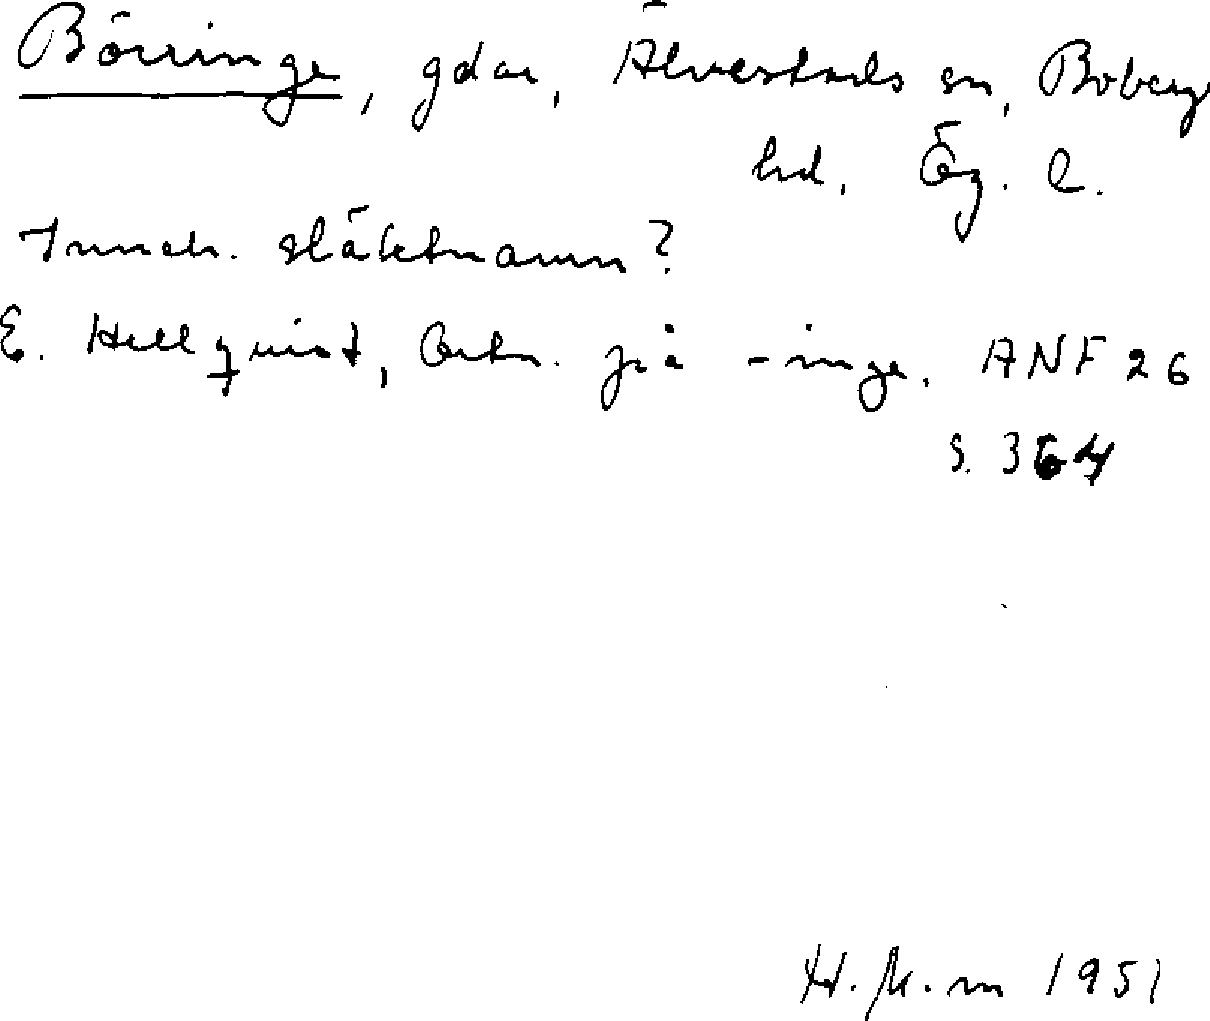 Börringe, gdar, Älvestads sn, Boberg
hd. Ög. l.
Inneh. släktnamn?
E. Hellquist, Ortn. på -inge. ANF 26
S. 364
1951